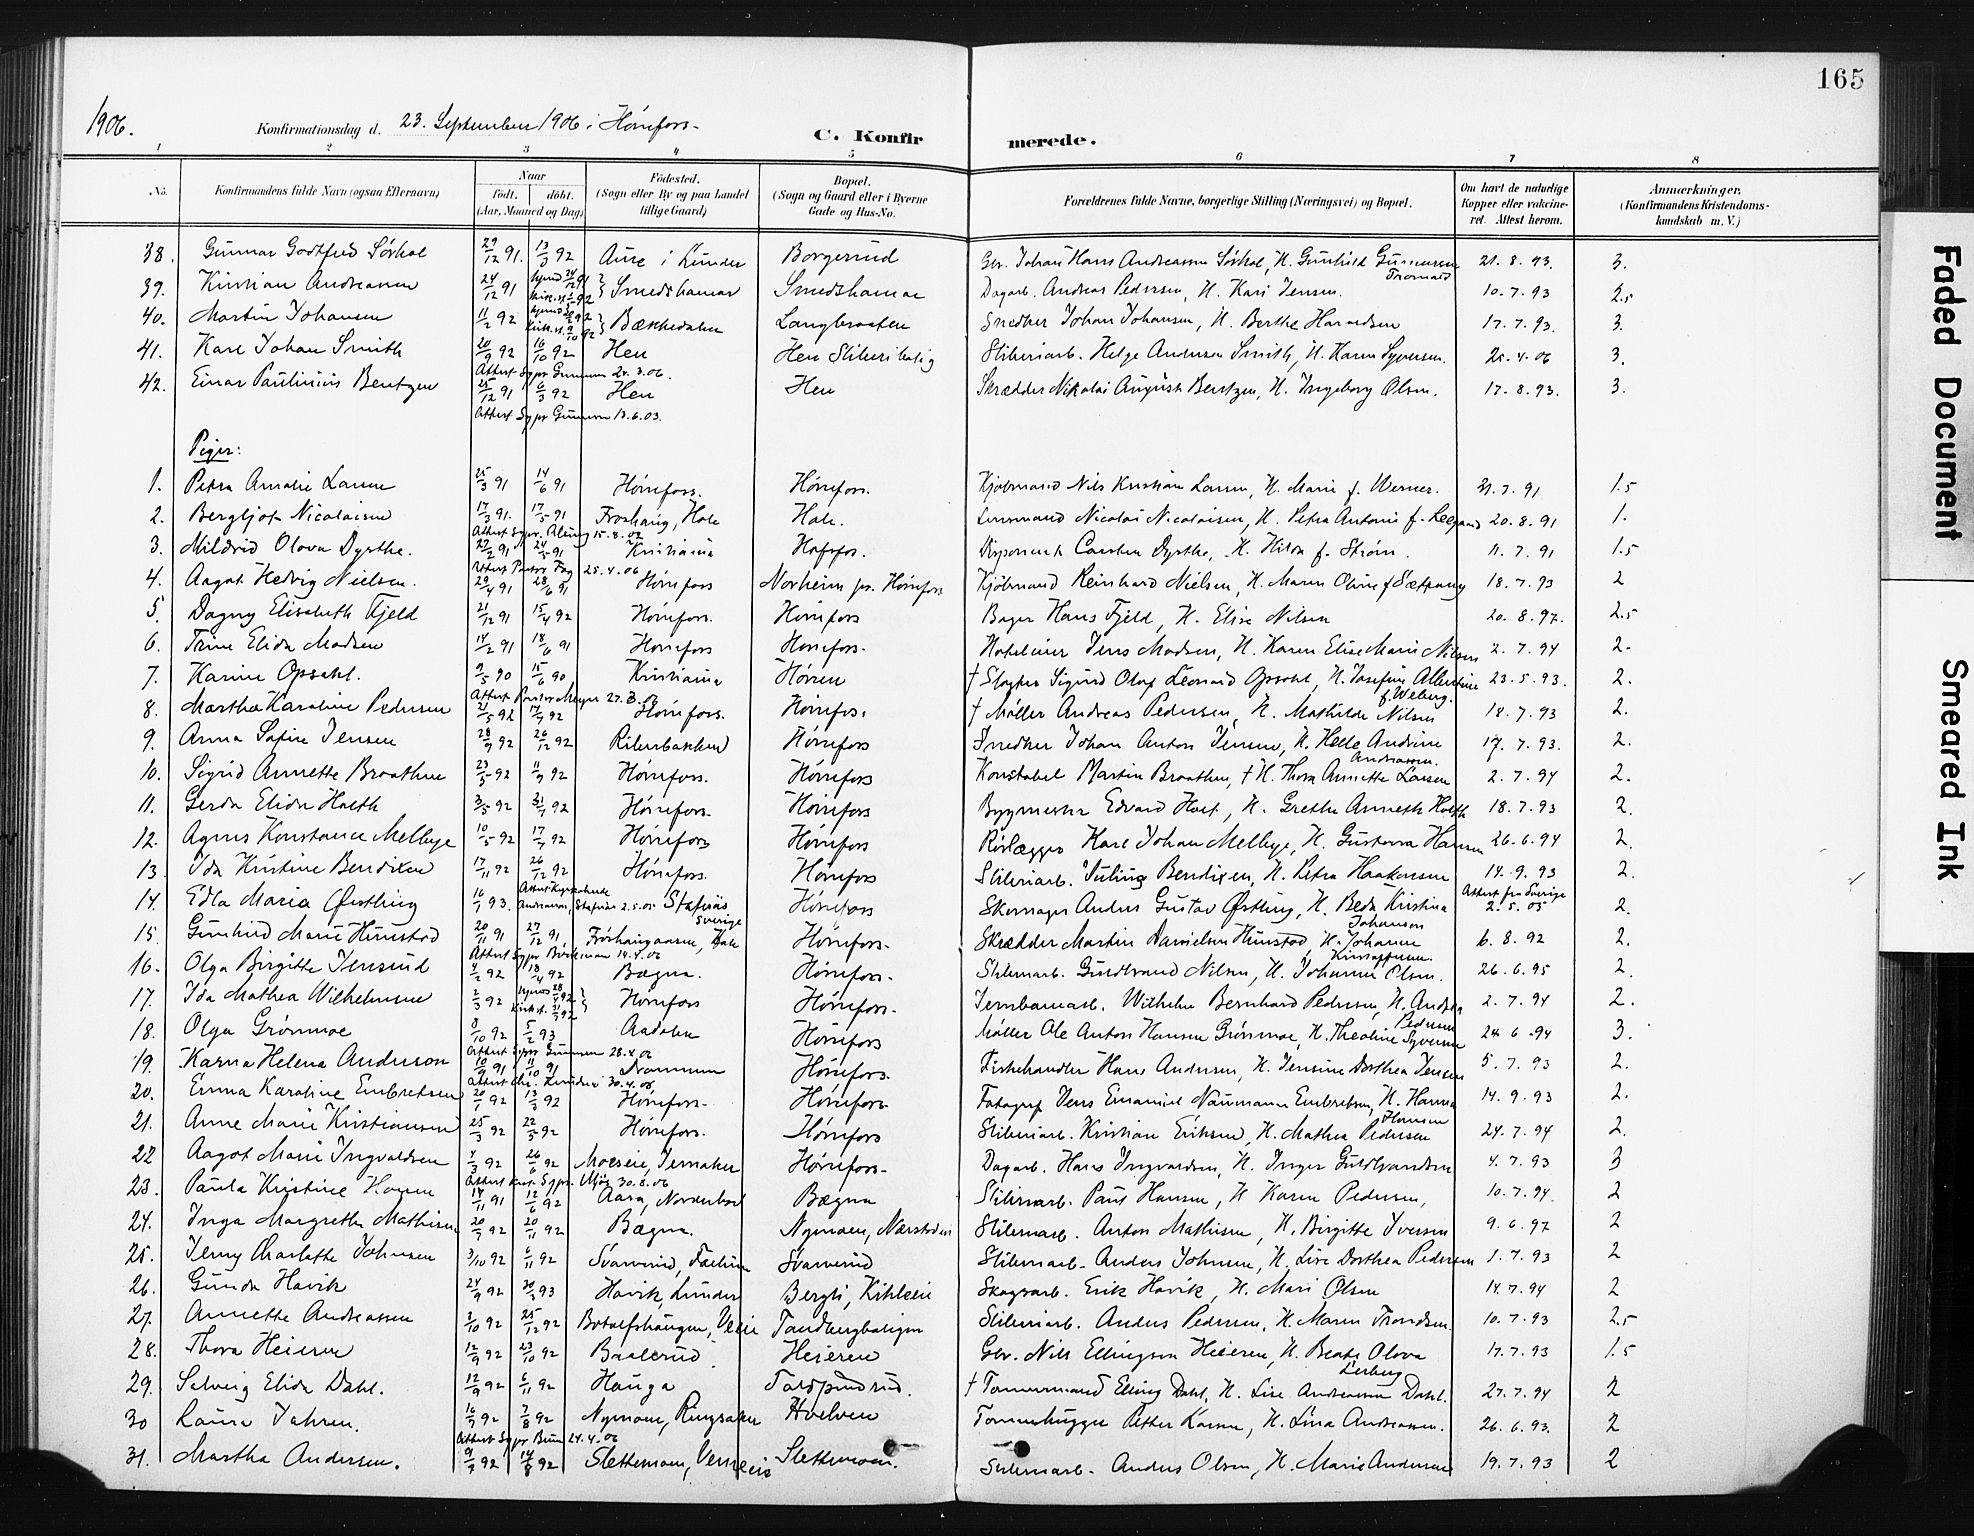 165
1906.
Konfirmationsdag d. 23. September 1906 i Hønefoss.
C. Konfirmerede.
1 2 3 4 5 6 7 8
No.
Konfirmandens fulde Navn (ogsaa Efternavn)
Naar
født. døbt.
(Aar, Maaned og Dag)
Fødested.
(Sogn eller By og paa Landet
tillige Gaard)
Bopæl.
(Sogn og Gaard eller i Byerne
Gade og Hus-No.
Forældrenes fulde Navne, borgerlige Stilling (Næringsvei) og Bopæl.
Om havt de naturlige
Kopper eller vakcine-
ret. Attest herom.
Anmærkninger.
(Konfirmandens Kristendoms-
kundskab m. V.)
38. Gunnar Godtfred Sørhol 29/12 91. 13/3 92 Aure i Lunder Borgerud Gbr. Johan Hans Andreasen Sørhol, H. Gunhild Gunnersen 21.8.93. 3.
39. Kristian Andreasen 24/12 91 Smedshamar Smedshamar Dagarb. Andreas Pedersen, H. Kari Jensen. 10.7.93 2.5
40. Martin Johansen 11/2 92 Bækkedalen Langbraaten Snedker Johan Johansen, H. Berthe Haraldsen 17.7.93. 3.
41. Karl Johan Smith 20/9 92 16/10 92 Hen Hen Sliberibolig Sliberiarb. Helge Andersen Smith, H. Karen Syversen. 25.4.06 3.
42. Einar Paulinius Bentzen 25/12 91 6/3 92 Hen Hen Skrædder Nikolai August Bentzen, H. Ingeborg Olsen. 17.8.93. 3.
Piger:
1. Petra Amalie Larsen 25/3 91 14/6 91 Hønefoss. Hønefoss. Kjøbmand Nils Kristian Larsen, H. Marie f. Werner. 31.7.91 1.5
2. Bergljot Nicolaisen 17/3 91. 17/5 91 Froshaug, Hole Hole. Lensmand Nicolai Nicolaisen, H. Petra Antonie f. 20.8.91 1.
3. Mildrid Olova Dyrthe. 27/2 91 24/5 91 Kristiania Hofsfos. Disponent Carsten Dyrthe, H. Hilda f. Strøm. 11.7.91 1.5
4. Aagot Hedvig Nielsen. 29/4 91 28/6 91 Hønefoss Norheim pr. Hønefoss Kjøbmand Reinhard Nielsen, H. Maren Oline f. Sætrang 18.7.93 2
5. Dagny Elisabeth Fjeld 21/12 91 15/4 92 Hønefoss. Hønefoss Bager Hans Fjeld, H. Elise Nilsen 20.8.97. 2.5
6. Trine Elida Madsen 14/2 91 18/6 91 Hønefoss Hønefoss. Hoteleier Jens Madsen, H. Karen Elise Marie Nilsen 2.7.94 2.
7. Karine Opsahl. 9/5 90 15/6 90 Kristiania Hønen † Slagter Sigurd Olaf Leonard Opsahl, H. Josefine Albertine f. Weberg. 23.5.93. 2.
8. Martha Karoline Pedersen 21/5 92 17/7 92 Hønefoss. Hønefos. † Møller Andreas Pedersen, H. Mathilde Nilsen 18.7.93 2.
9. Anna Sofie Jensen 28/9 92 26/12 92 Rilenbakken Hønefoss Snedker Johan Anton Jensen, H. Helle Andrine Andreasen. 17.7.93. 2.
10. Sigrid Annette Braathen 23/5 92 11/9 92 Hønefoss. Hønefoss Konstabel Martin Braathen, † H. Thora Annette Larsen 2.7.94 2.
11. Gerda Elida Holth 3/5 92 31/7 92 Hønefoss. Hønefoss Bygmester Edvard Holt, H. Grethe Anneth Holth 18.7.93 2.
12. Agnes Konstance Melbye 10/5 92 17/7 92 Hønefoss Hønefoss Rørlægger Karl Johan Melbye, H. Gustava Hansen 26.6.94 2.
13. Ida Kristine Bendixen 17/11 92 26/12 92 Hønefoss. Hønefoss Sliberiarb. Julius Bendixen, H. Petra Haakonsen 14.9.93 2.
14. Edla Maria Østling 16/1 93. Stafnäs Sverige Hønefoss Skomager Anders Gustav Østling, H. Beda Kristina Johanson Attest fra Sverige 2.5.05 2.
15. Gunhild Marie Hunstad 20/11 91 27/12 91 Froshaugaasen, Hole Hønefoss. Skrædder Martin Danielsen Hunstad, H. Johanne 6.8.92 2.
16. Olga Birgitte Jensrud 4/2 92 18/4 92 Bægna. Hønefoss. Sliberiarb. Guldbrand Nilsen, H. Johanne Olsen. 26.6.95 2.
17. Ida Mathea Wilhelmsen 2/3 92 Hønefoss Hønefoss. Jernbanearb. Wilhelm Bernhard Pedersen, H. Andrea Pedersen 2.7.94 2.
18. Olga Grønmoe 8/10 92 5/2 93 Aadalen Hønefoss Møller Ole Anton Hansen Grønmoe, H. Theoline Syversen 24.6.94 3.
19. Karna Helena Anderson 10/9 91 11/10 91 Drammen Hønefoss. Fiskehandler Hans Andersen, H. Jensine Dorthea Jensen 5.7.93 2.
20. Emma Karoline Embretsen 20/1 92 13/3 92 Hønefoss. Hønefoss Fotograf Jens Emanuel Naumann Embretsen, H. Hanna Hansen 14.9.93 2.
21. Anne Marie Kristiansen 25/3 92 22/5 92 Hønefoss. Hønefoss Sliberiarb. Kristian Eriksen, H. Mathea Pedersen 24.7.94 2.
22 Aagot Marie Ingvaldsen 4/3 92 26/6 92 Moeseie, Jevnaker Hønefoss. Dagarb. Hans Ingvaldsen, H. Inger Guldbrandsen 4.7.93 3
23. Paula Kristine Hansen 14/11 91 12/6 92 Aasa, Norderhov Bægna Sliberiarb. Paul Hansen, H Karen Pedersen, 10.7.94. 2
24. Inga Margrethe Mathisen 20/7 92 20/11 92 Bægna. Nymoen, Nærstaden Sliberiarb. Anton Mathisen, H. Birgitte Iversen 9.6.97 2
25. Jenny Charlotte Johnsen 3/10 92 6/11 92 Svarverud, Svarverud Sliberiarb. Anders Johnsen, H. Lise Dorthea Pedersen 1.7.93 2
26. Gunda Havik 24/9 92 30/3 93 Havik, Lunder Bergli, Kihleeie Skogsarb. Erik Havik, H. Mari Olsen 14.7.94 2
27. Annette Andreassen 3/10 92 25/12 92 Botolfshaugen, Veeie Tandbergboligen Sliberiarb. Anders Pedersen, H. Maren Trondsen. 10.7.93 2.5
28. Thora Heieren 12/9 92 23/10 92 Baalerud. Heieren Gbr. Nils Ellingsen Heieren, H. Beate Olova Lerberg 17.7.93 1.5
29. Solveig Elida Dahl. 12/9 92 6/11 92 Hauga † Tømmermand Elling Dahl, H. Lise Andreasen Dahl. 27.7.94 2
30 Laura Jahren. 16/7 92 7/8 92 Nymoen, Ringsaker Hvelven Tømmerhugger Petter Larsen, H. Lina Andreassen. 26.6.93. 2
31. Martha Andersen. 9/7 92 14/8 92 Slettemoen, Slettemoen. Sliberiarb. Anders Olsen, H. Marie Andersen 19.7.93 2
Faded Document
Smeared Ink